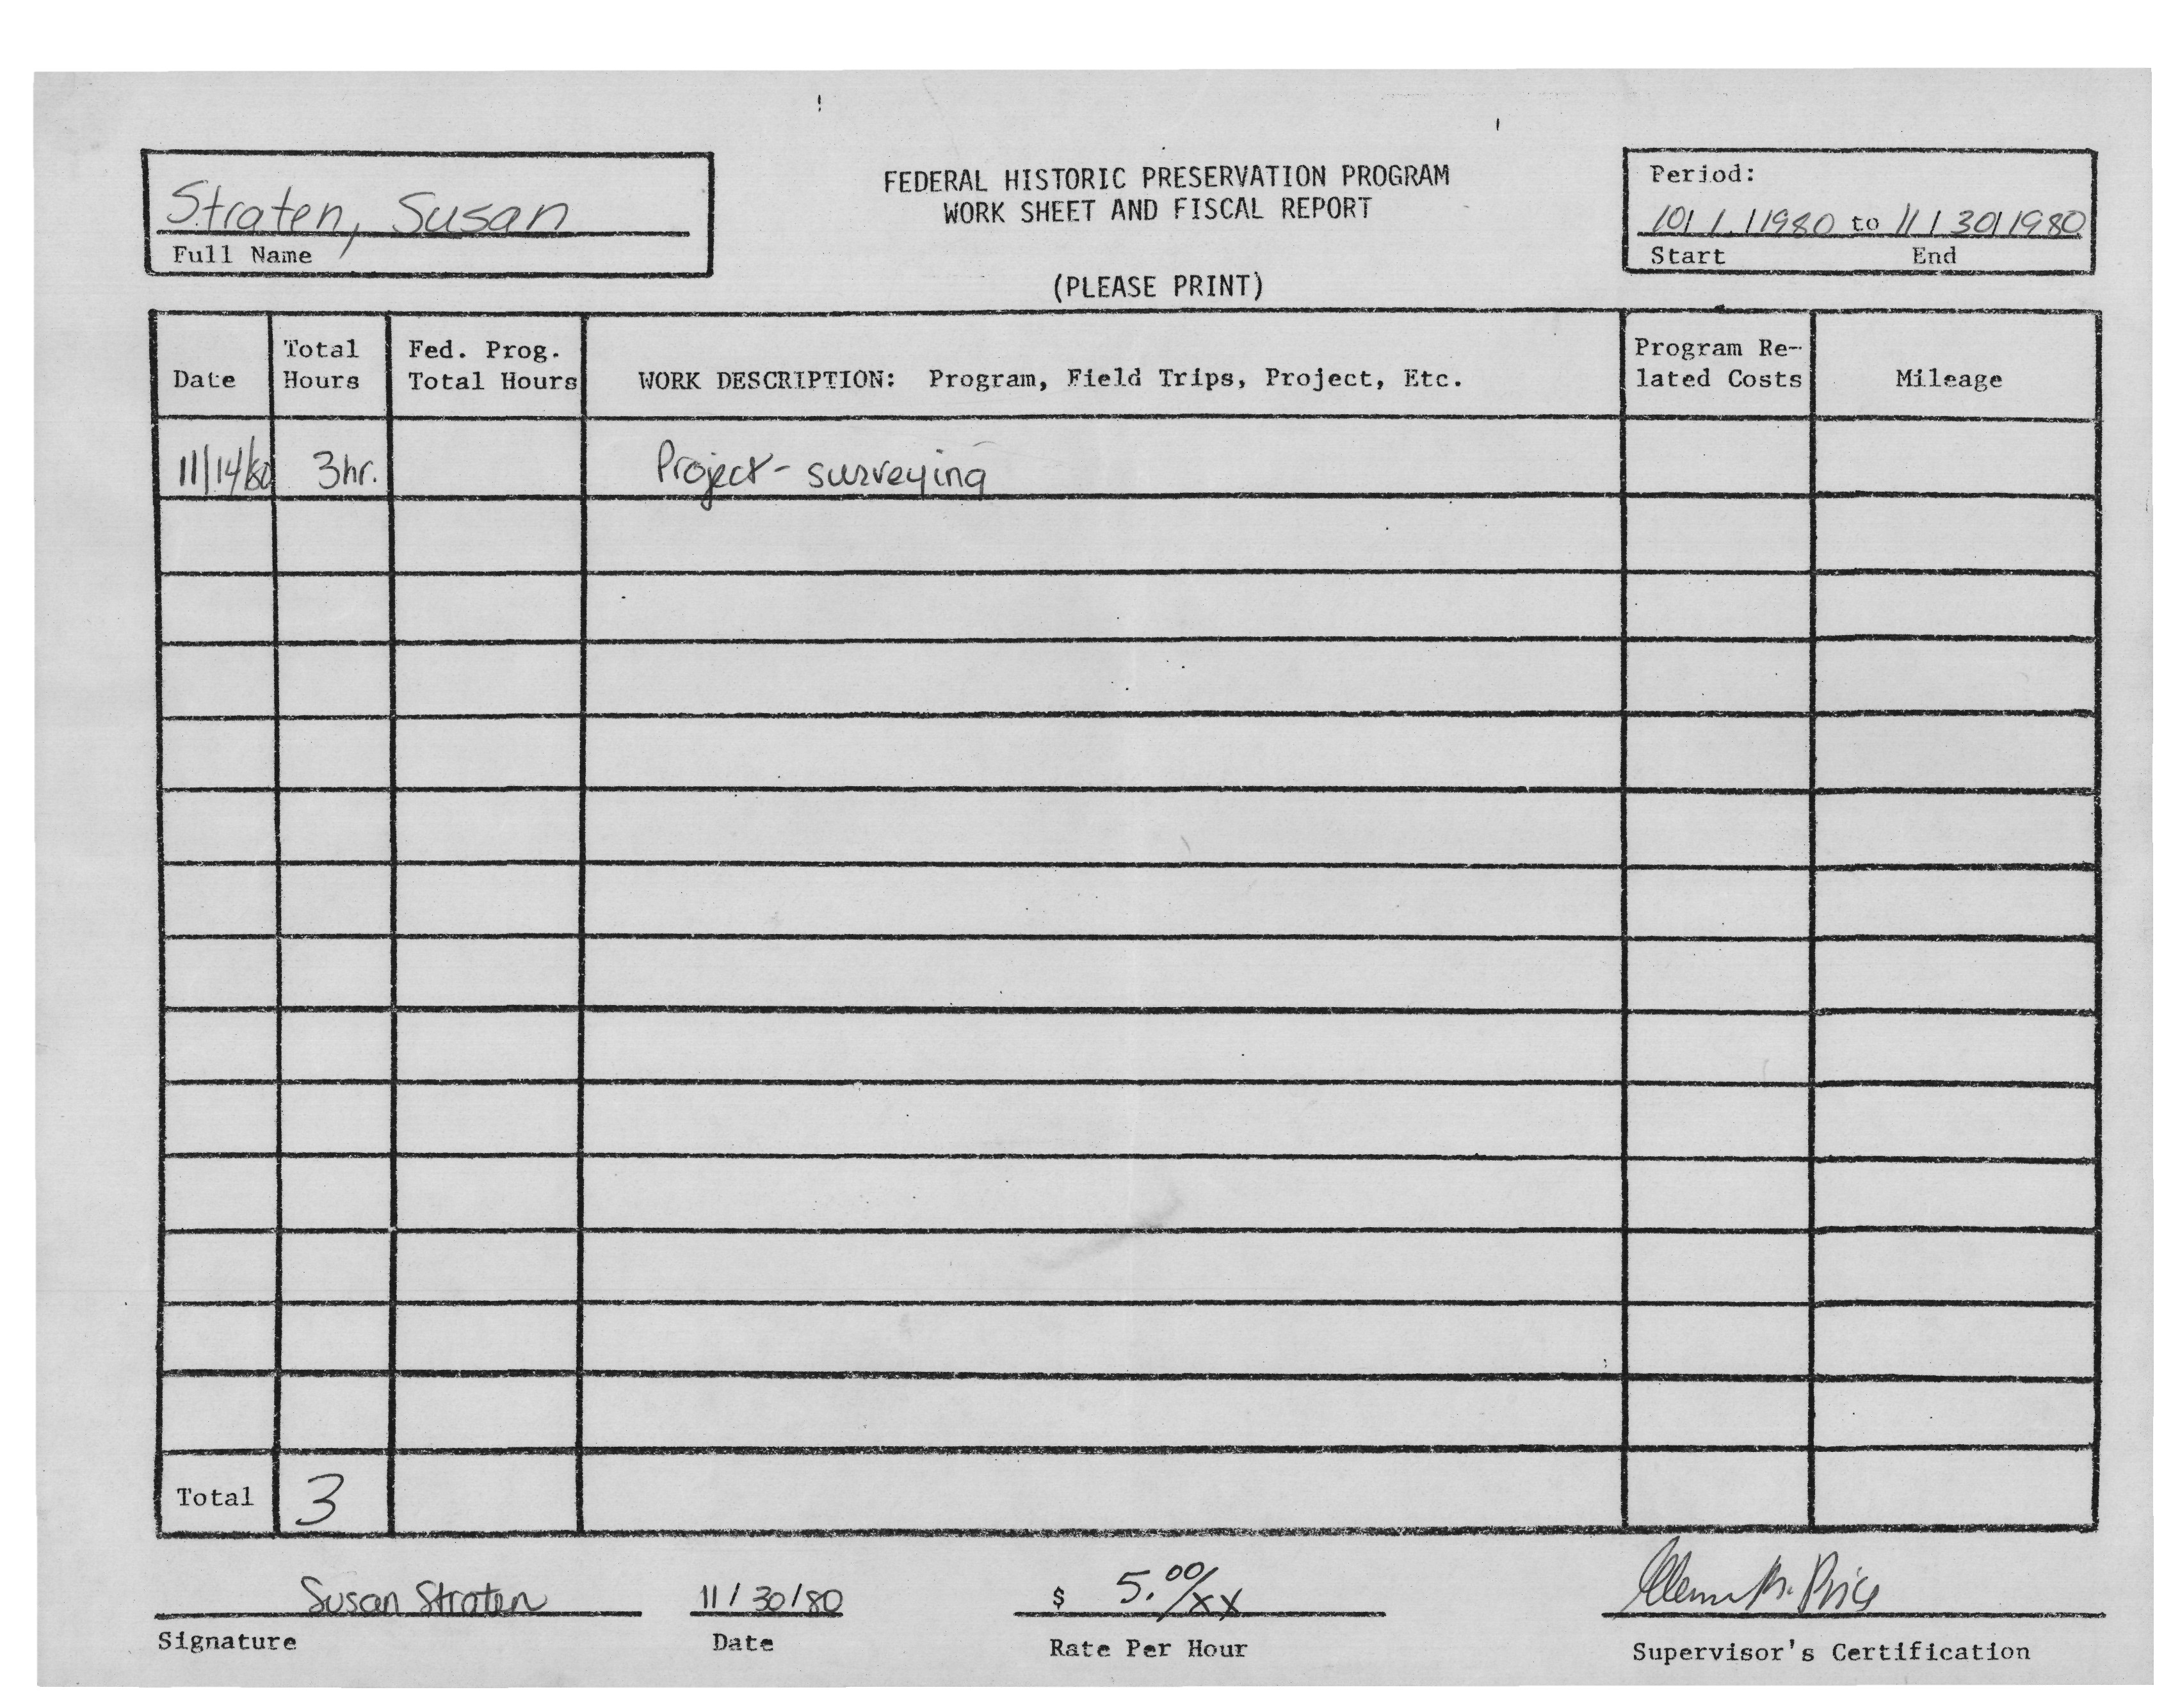 Straten, Susan
Full Name
FEDERAL HISTORIC PRESERVATION PROGRAM
WORK SHEET AND FISCAL REPORT
(PLEASE PRINT)
Period:
10/1/1980 to 11/30/1980
Start End
Date Total Hours Fed. Prog. Total Hours WORK DESCRIPTION: Program, Field Trips, Project, Etc. Program Re-lated Costs Mileage
11/14/80 3hr. Project - surveying
Total 3
Susan Straten 11/30/80 $ 5.00/xx Price
Signature Date Rate Per Hour Supervisor's Certification